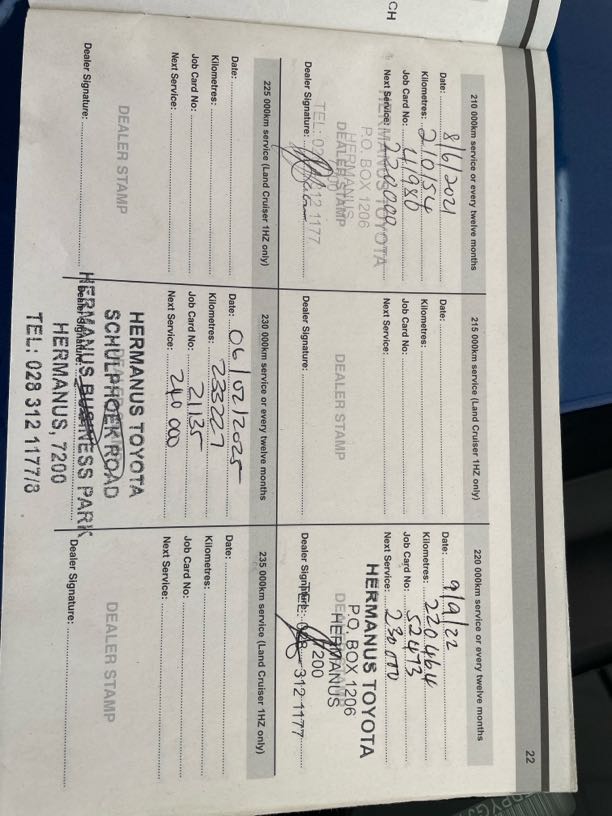 CH
22
210 000km service or every twelve months
Date: 8/6/2021
Kilometres: 210154
Job Card No: 41980
Next Service: 220000
HERMANUS TOYOTA
P.O. BOX 1206
HERMANUS
DEALER STAMP
TEL: 028 312 1177
Dealer Signature:
215 000km service (Land Cruiser 1HZ only)
Date:
Kilometres:
Job Card No:
Next Service:
DEALER STAMP
Dealer Signature:
220 000km service or every twelve months
Date: 9/9/22
Kilometres: 220464
Job Card No: 52473
Next Service: 230 000
HERMANUS TOYOTA
P.O. BOX 1206
HERMANUS
7200
Dealer Signature:
312 1177
225 000km service (Land Cruiser 1HZ only)
Date:
Kilometres:
Job Card No:
Next Service:
DEALER STAMP
Dealer Signature:
230 000km service or every twelve months
Date: 06/02/2025
Kilometres: 233227
Job Card No: 21135
Next Service: 240 000
HERMANUS TOYOTA
SCHULPHOEK ROAD
HERMANUS BUSINESS PARK
Dealer Signature:
HERMANUS, 7200
TEL: 028 312 1177/8
235 000km service (Land Cruiser 1HZ only)
Date:
Kilometres:
Job Card No:
Next Service:
DEALER STAMP
Dealer Signature: